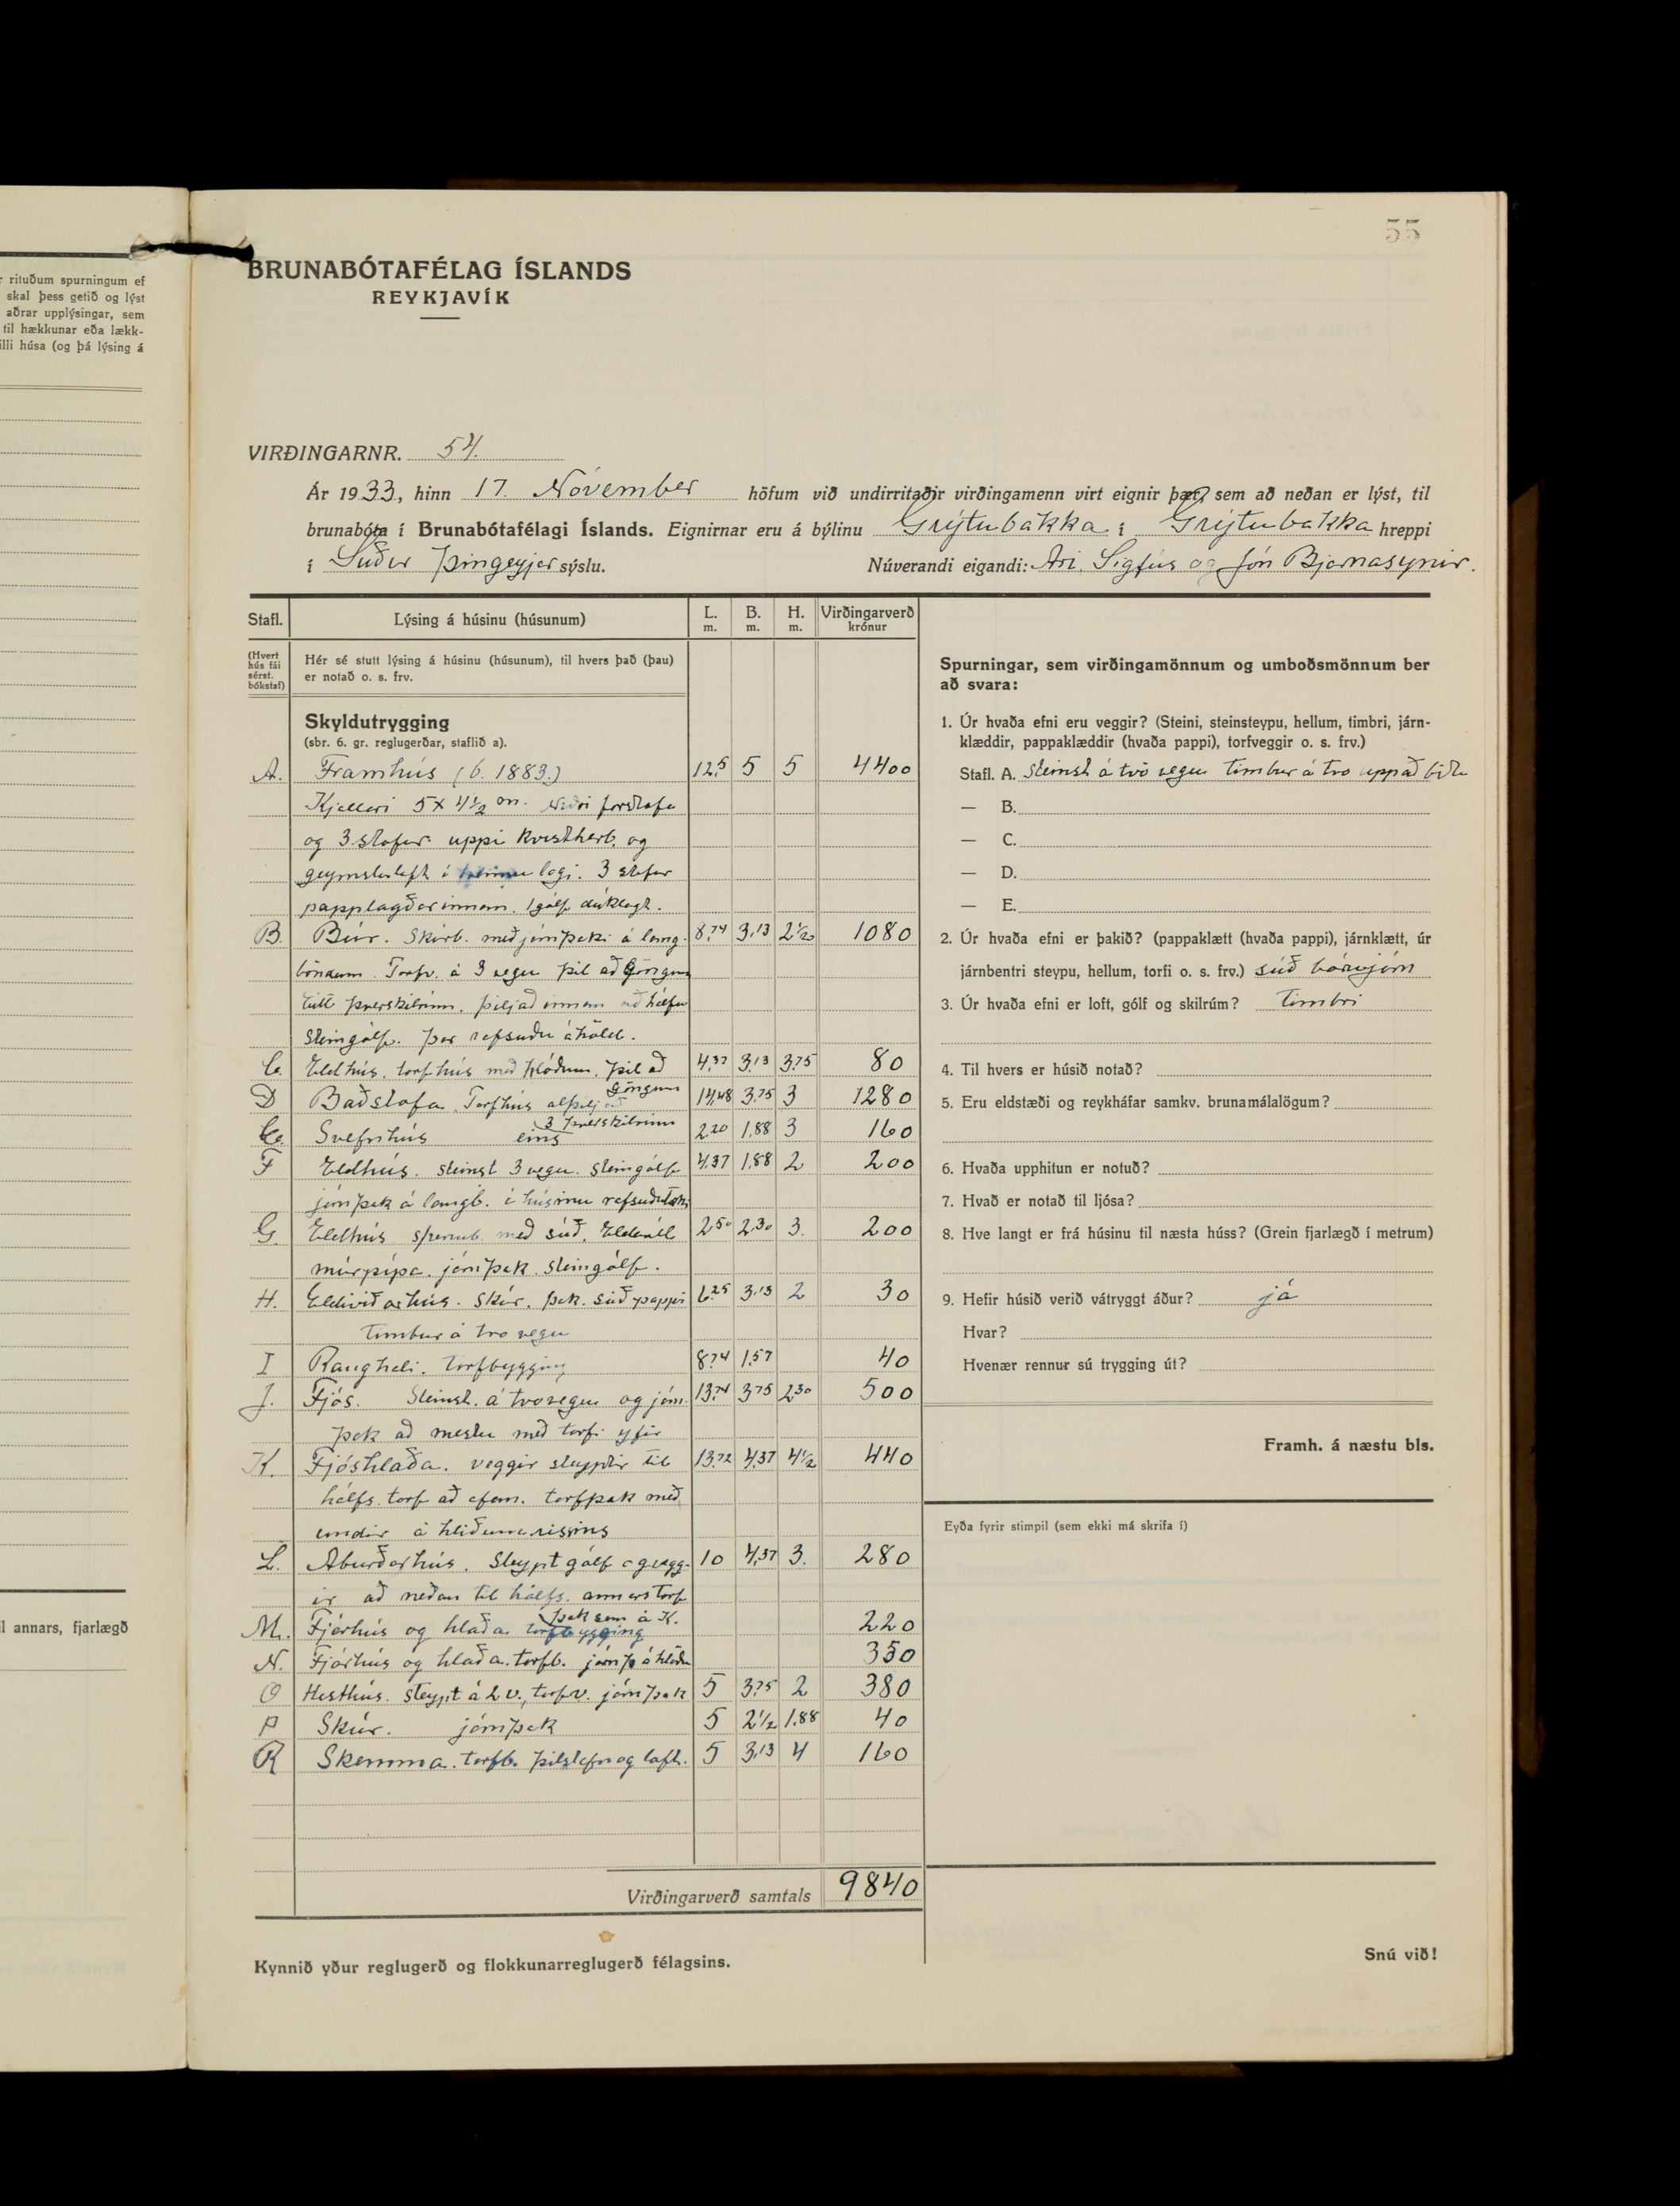 r rituðum spurningum ef
skal þess getið og lýst
aðrar upplýsingar, sem
til hækkunar eða lækk-
illi húsa (og þá lýsing á
l annars, fjarlægð
55
BRUNABÓTAFÉLAG ÍSLANDS
REYKJAVÍK
VIRÐINGARNR. 54.
Ár 1933, hinn 17. Nóvember höfum við undirritaðir virðingamenn virt eignir þær, sem að neðan er lýst, til
brunabóta í Brunabótafélagi Íslands. Eignirnar eru á býlinu Grýtubakka í Grýtubakka hreppi
í Suður Þingeyjar sýslu. Núverandi eigandi: Ari, Sigfús og Jón Bjarnasynir.
Stafl. Lýsing á húsinu (húsunum) L. m. B. m. H. m. Virðingarverð krónur
(Hvert hús fái sérst. bókstaf) Hér sé stutt lýsing á húsinu (húsunum), til hvers það (þau)
er notað o. s. frv.
Skyldutrygging
(sbr. 6. gr. reglugerðar, staflið a).
A. Framhús (b. 1883.) 12,5 5 5 4400
Kjallari 5x4½ m. Niðri forstofa
og 3 stofur uppi kvistherb. og
geymsluloft í lagi. 3 stofur
papplagðar innan. 1 gólf dúklagt.
B. Búr. Skúrb. með járnþaki á lang- 8,74 3,13 2½ 1080
böndum. Torfv. á 3 vegu þil að göngum
eitt þverskilrúm. þiljað innan að hálfu
steingólf. Þar rafsuðu áhöld.
C. Eldhús, torfhús með hlóðum, þil að göngum 4,37 3,13 3,75 80
D Baðstofa. Torfhús alþiljað 3 þverskilrúm 14,48 3,75 3 1280
E. Svefnhús eins 2,20 1,88 3 160
F Eldhús. steinst 3 vegu. steingólf 4,37 1,88 2 200
járnþak á langb. í húsinu
G. Eldhús með súð. Eldavél 2,50 2,30 3. 200
múrpípa. járnþak. steingólf.
H. Eldiviðarhús. skúr. þak. súð pappi 6,25 3,13 2 30
timbur á tvo vegu
I Ranghali. torfbygging 8,74 1,57 40
J. Fjós. Steinst. á tvo vegu og járn- 13,74 3,75 2,30 500
þak að mestu með torfi yfir
K. Fjóshlaða. veggir steyptir til 13,72 4,37 4½ 440
hálfs. torf að ofan. torfþak með
undir á hliðum rissins
L. Áburðarhús. Steypt gólf og vegg- 10 4,37 3. 280
ir að neðan til hálfs. annars torf
þak sem á K.
M. Fjárhús og hlaða torfbygging 220
N. Fjárhús og hlaða. torfb. járnþ á hlöðu 350
O Hesthús. steypt á 2 v., torfv. járnþak 5 3,75 2 380
P Skúr. járnþak 5 2½ 1,88 40
R Skemma. torfb. þilstafn og loft. 5 3,13 4 160
Virðingarverð samtals 9840
Kynnið yður reglugerð og flokkunarreglugerð félagsins.
Spurningar, sem virðingamönnum og umboðsmönnum ber
að svara:
1. Úr hvaða efni eru veggir? (Steini, steinsteypu, hellum, timbri, járn-
klæddir, pappaklæddir (hvaða pappi), torfveggir o. s. frv.)
Stafl. A. steinst á tvö vegu timbur á tvo upp að
— B.
— C.
— D.
— E.
2. Úr hvaða efni er þakið? (pappaklætt (hvaða pappi), járnklætt, úr
járnbentri steypu, hellum, torfi o. s. frv.) súð bárujárn
3. Úr hvaða efni er loft, gólf og skilrúm? timbri
4. Til hvers er húsið notað?
5. Eru eldstæði og reykháfar samkv. brunamálalögum?
6. Hvaða upphitun er notuð?
7. Hvað er notað til ljósa?
8. Hve langt er frá húsinu til næsta húss? (Grein fjarlægð í metrum)
9. Hefir húsið verið vátryggt áður? já
Hvar?
Hvenær rennur sú trygging út?
Framh. á næstu bls.
Eyða fyrir stimpil (sem ekki má skrifa í)
Snú við!